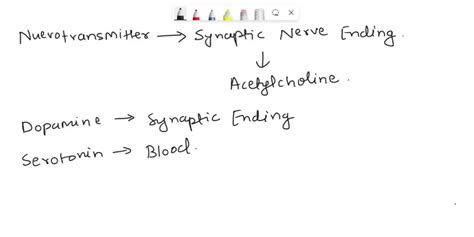 Nuerotransmitter → Synaptic Nerve Ending.
↓
Acetylcholine.
Dopamine → Synaptic Ending
Serotonin → Blood.